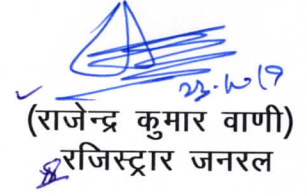 23.10.19
(राजेन्द्र कुमार वाणी)
रजिस्ट्रार जनरल